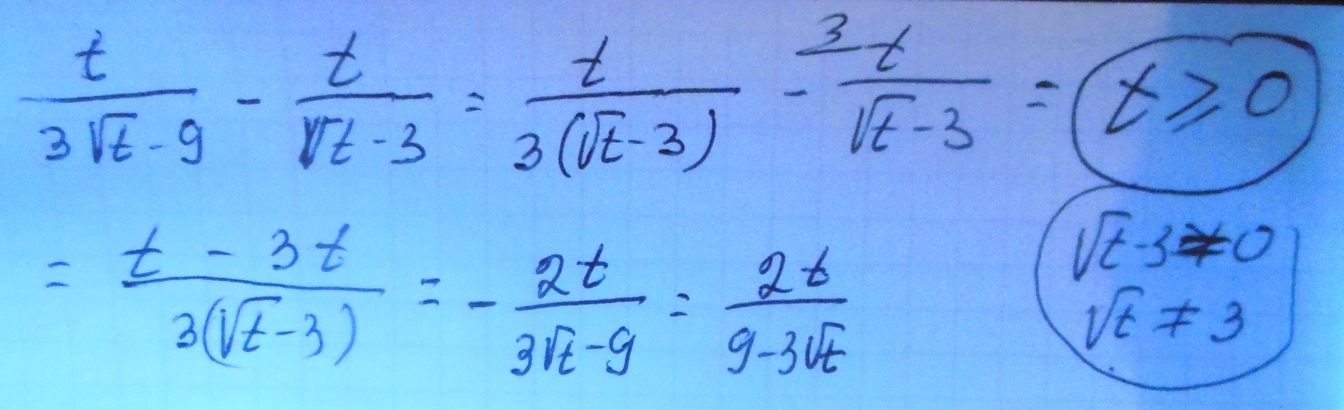 t/(3√t-9) - t/(√t-3) = t/(3(√t-3)) - ³⁄t/(√t-3) = t ≥ 0
= (t - 3t)/(3(√t-3)) = - 2t/(3√t-9) = 2t/(9-3√t)
√t-3≠0
√t ≠ 3